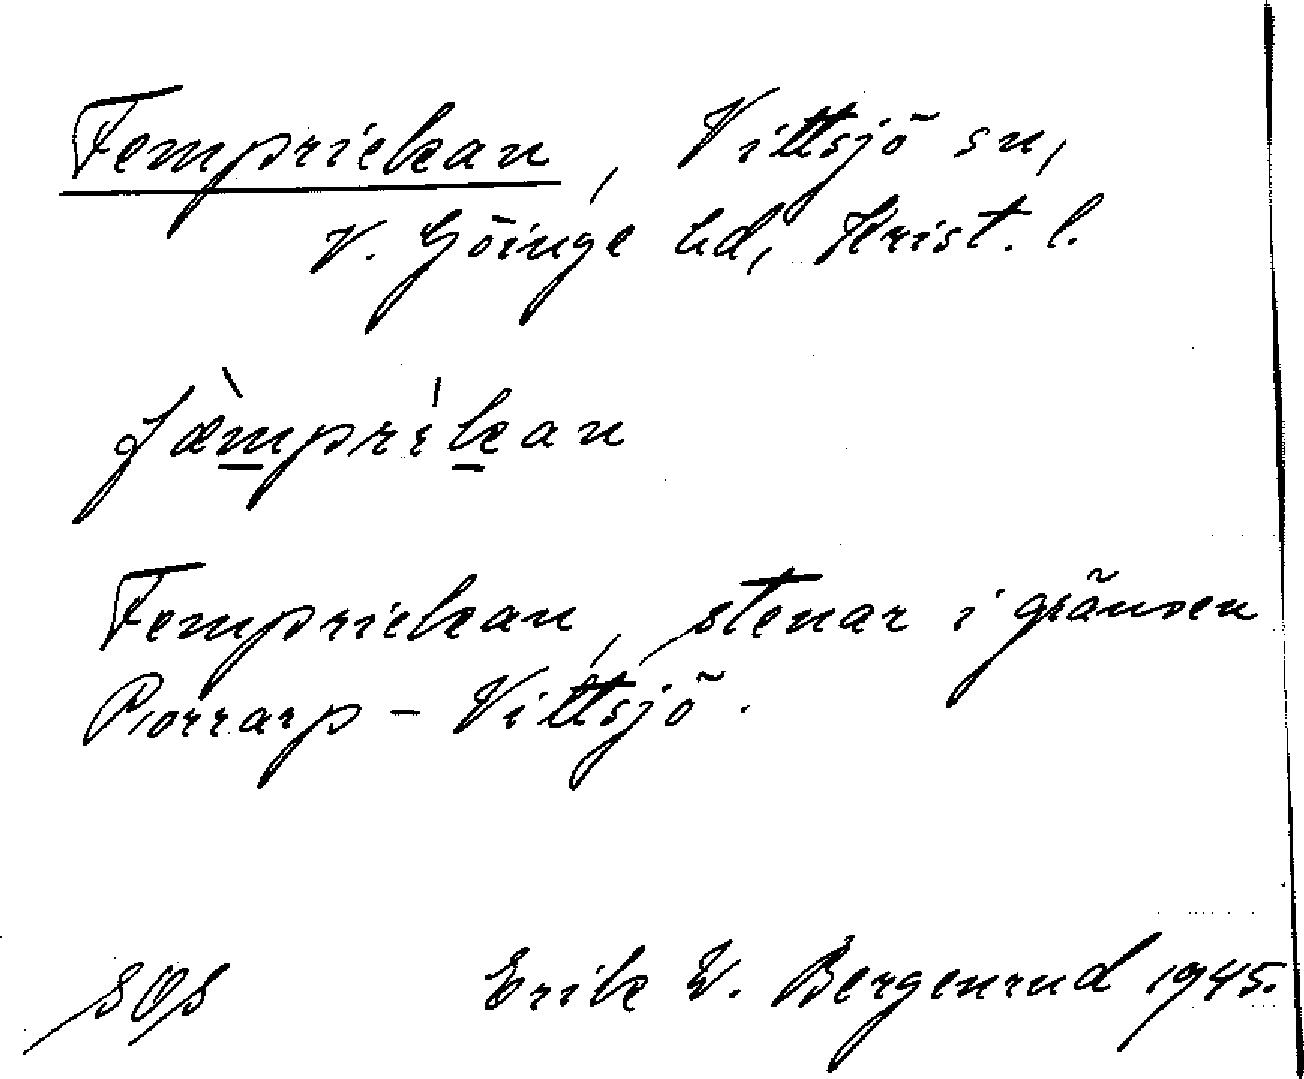 Fempriekan, Vittsjö sn,
V. Göinge hd, Krist. l.
fæ̀mprìkan
Fempriekan, stenar i gränsen
Porrarp - Vittsjö.
Erik W. Bergenrud 1945.